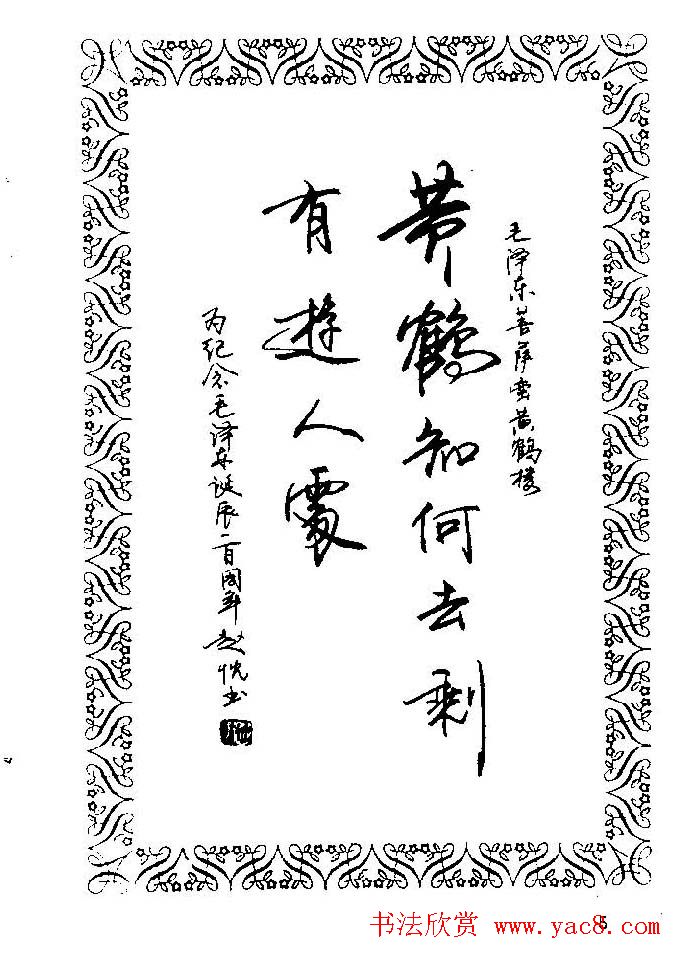 毛泽东菩萨蛮黄鹤楼
黄鹤知何去剩
有遊人處
为纪念毛泽东诞辰一百周年赵书
5
书法欣赏 www.yac8.com